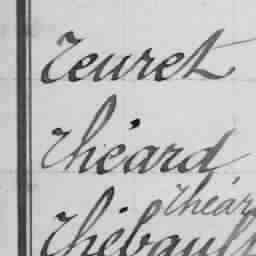 Teuret
Théard
Théar
Thébault